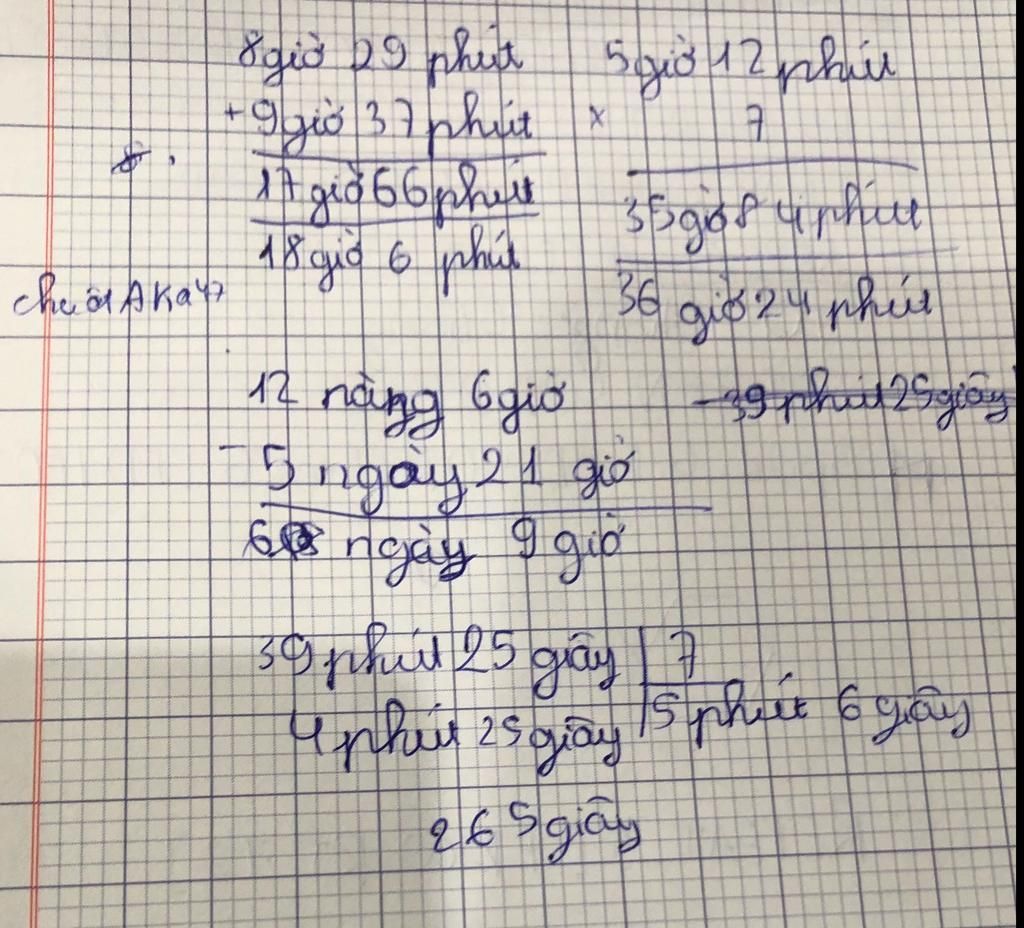 8giờ 29 phút
+ 9giờ 37 phút
17 giờ 66 phút
18 giờ 6 phút
5 giờ 12 phút
× 7
35 giờ 84 phút
36 giờ 24 phút
AKa47
12 nàng 6 giờ
- 5 ngày 21 giờ
6 ngày 9 giờ
- 39 phút 25 giây
39 phút 25 giây | 7
4 phút 25 giây | 5 phút 6 giây
265 giây